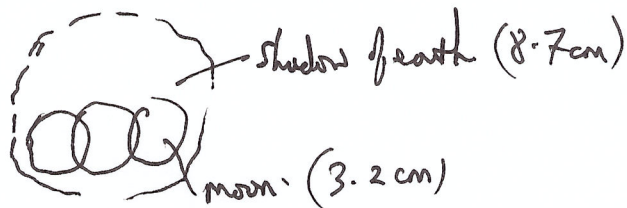 shadow of earth (8.7cm)
moon. (3.2 cm)